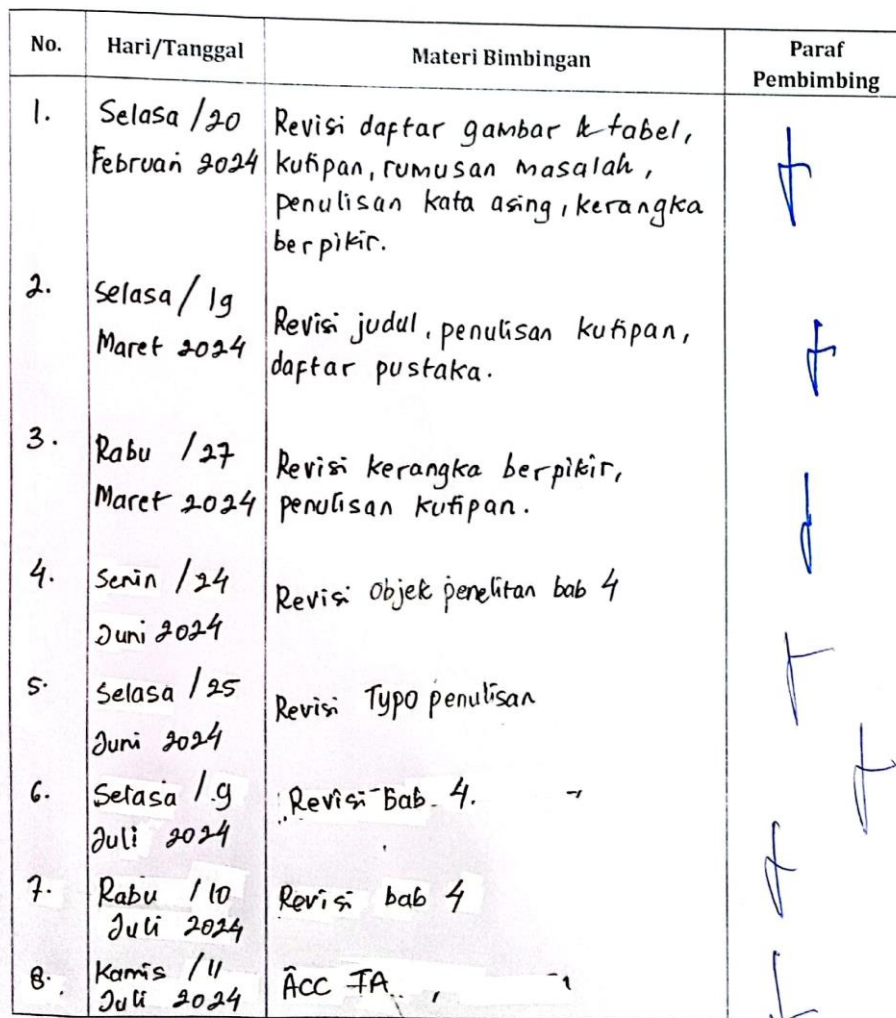 No. Hari/Tanggal Materi Bimbingan Paraf Pembimbing
1. Selasa /20 Februari 2024
Revisi daftar gambar & tabel,
kutipan, rumusan masalah,
penulisan kata asing, kerangka
berpikir.
2. Selasa / 19 Maret 2024
Revisi judul, penulisan kutipan,
daftar pustaka.
3. Rabu /27 Maret 2024
Revisi kerangka berpikir,
penulisan kutipan.
4. Senin /24 Juni 2024
Revisi Objek penelitan bab 4
5. Selasa /25 Juni 2024
Revisi Typo penulisan
6. Selasa /9 Juli 2024
Revisi Bab 4.
7. Rabu /10 Juli 2024
Revisi bab 4
8. Kamis /11 Juli 2024
ACC TA